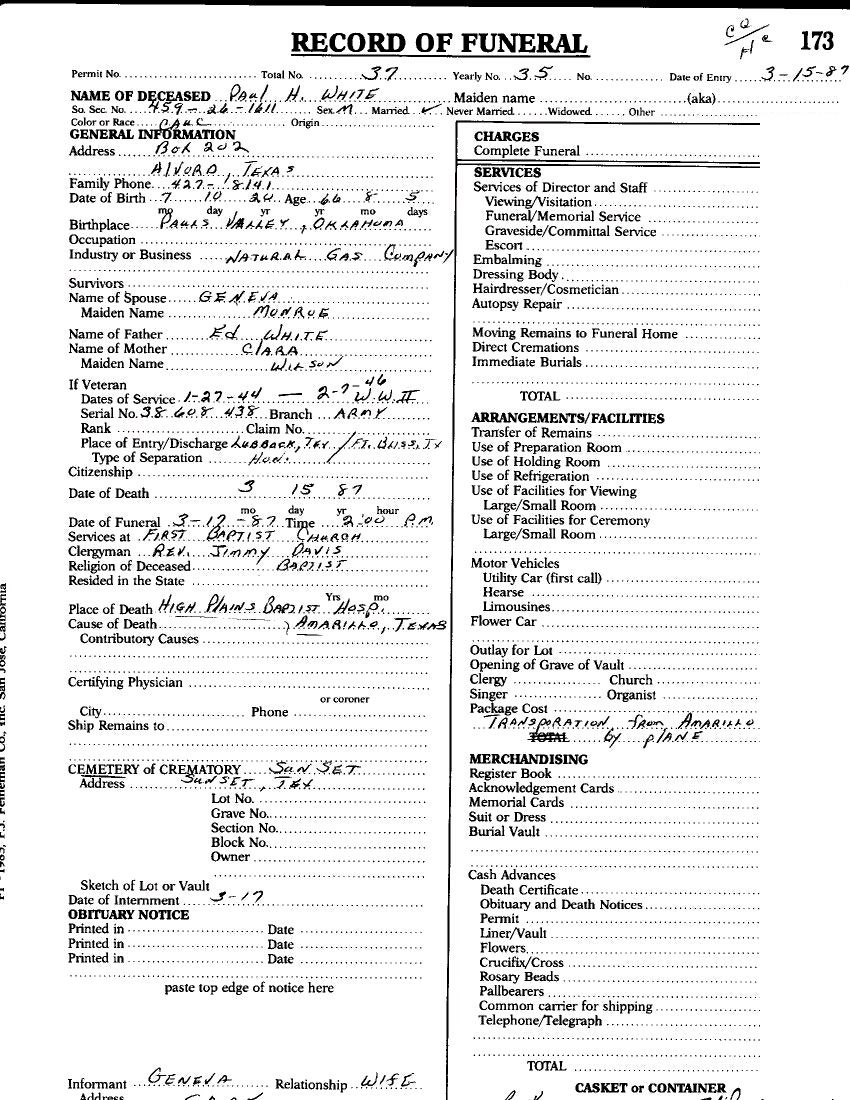 RECORD OF FUNERAL 173
Permit No. Total No. 37 Yearly No. 35 No. Date of Entry 3-15-87
NAME OF DECEASED Paul H. WHITE Maiden name (aka)
So. Sec. No. 459-26-1611 Sex M Married ✓ Never Married Widowed Other
Color or Race CAUC Origin
GENERAL INFORMATION
Address Box 202
Alvord, Texas
Family Phone 427-8141
Date of Birth 7 10 20 Age 66 8 5
mo day yr yr mo days
Birthplace PAULS VALLEY, OKLAHOMA
Occupation
Industry or Business NATURAL GAS COMPANY
Survivors
Name of Spouse GENEVA
Maiden Name MONROE
Name of Father Ed WHITE
Name of Mother ClARA
Maiden Name WILSON
If Veteran
Dates of Service 1-27-44 — 2-7-46 W.W.II
Serial No. 38 608 438 Branch ARMY
Rank Claim No.
Place of Entry/Discharge LUBBOCK, TEX / FT. BLISS, TX
Type of Separation HON.
Citizenship
Date of Death 3 15 87
mo day yr hour
Date of Funeral 3-17-87 Time 2:00 P.M.
Services at FIRST BAPTIST CHURCH
Clergyman REV. JIMMY DAVIS
Religion of Deceased BAPTIST
Resided in the State
Yrs mo
Place of Death HIGH PLAINS BAPTIST HOSP.
Cause of Death , AMARILLO, TEXAS
Contributory Causes
Certifying Physician
or coroner
City Phone
Ship Remains to
CEMETERY of CREMATORY SUNSET
Address SUNSET, TEX
Lot No.
Grave No.
Section No.
Block No.
Owner
Sketch of Lot or Vault
Date of Internment 3-17
OBITUARY NOTICE
Printed in Date
Printed in Date
Printed in Date
paste top edge of notice here
Informant GENEVA Relationship WIFE
Address
CHARGES
Complete Funeral
SERVICES
Services of Director and Staff
Viewing/Visitation
Funeral/Memorial Service
Graveside/Committal Service
Escort
Embalming
Dressing Body
Hairdresser/Cosmetician
Autopsy Repair
Moving Remains to Funeral Home
Direct Cremations
Immediate Burials
TOTAL
ARRANGEMENTS/FACILITIES
Transfer of Remains
Use of Preparation Room
Use of Holding Room
Use of Refrigeration
Use of Facilities for Viewing
Large/Small Room
Use of Facilities for Ceremony
Large/Small Room
Motor Vehicles
Utility Car (first call)
Hearse
Limousines
Flower Car
Outlay for Lot
Opening of Grave of Vault
Clergy Church
Singer Organist
Package Cost
TRANSPORATION from AMARILLO
TOTAL by plANE
MERCHANDISING
Register Book
Acknowledgement Cards
Memorial Cards
Suit or Dress
Burial Vault
Cash Advances
Death Certificate
Obituary and Death Notices
Permit
Liner/Vault
Flowers
Crucifix/Cross
Rosary Beads
Pallbearers
Common carrier for shipping
Telephone/Telegraph
TOTAL
CASKET or CONTAINER
Co, Inc. San Jose, California